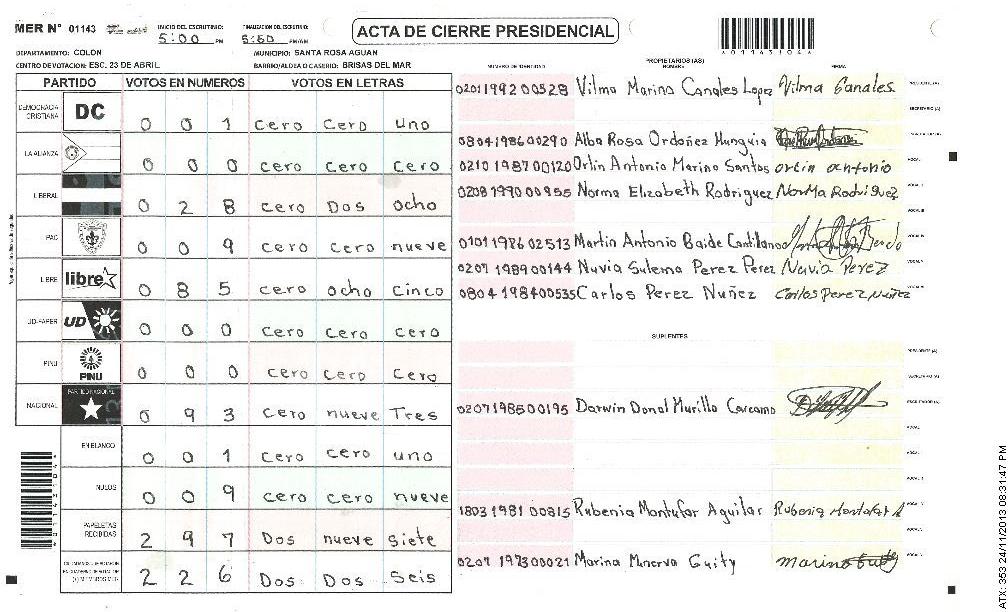 MER N° 01143 INICIO DEL ESCRUTINIO: 5:00 PM FINALIZACION DEL ESCRUTINIO: 5:50 PM/AM ACTA DE CIERRE PRESIDENCIAL
DEPARTAMENTO: COLON MUNICIPIO: SANTA ROSA AGUAN
CENTRO DE VOTACION: ESC. 23 DE ABRIL BARRIO/ALDEA O CASERIO: BRISAS DEL MAR
PARTIDO VOTOS EN NUMEROS VOTOS EN LETRAS
DEMOCRACIA CRISTIANA DC 0 0 1 cero Cero uno
LA ALIANZA 0 0 0 cero cero cero
LIBERAL 0 2 8 cero Dos ocho
PAC 0 0 9 cero cero nueve
LIBRE libre 0 8 5 cero ocho Cinco
UD-FAPER UD 0 0 0 cero cero cero
PINU PINU 0 0 0 cero cero cero
NACIONAL PARTIDO NACIONAL 0 9 3 cero nueve Tres
EN BLANCO 0 0 1 cero cero uno
NULOS 0 0 9 cero cero nueve
PAPELETAS RECIBIDAS 2 9 7 Dos nueve siete
2 2 6 Dos Dos Seis
PROPIETARIOS (AS)
NUMERO DE IDENTIDAD NOMBRE FIRMA
0201199200528 Vilma Marina Canales Lopez Vilma Canales PRESIDENTE (A)
SECRETARIO (A)
0804198600290 Alba Rosa Ordoñez Munguia ESCRUTADOR (A)
0210198700120 Orlin Antonio Marino Santos orlin antonio VOCAL I
0208199000955 Norma Elizabeth Rodriguez Norma Rodriguez VOCAL II
VOCAL III
0101198602513 Martin Antonio Baide Cantillano VOCAL IV
0207198900144 Nuvia Sulema Perez Perez Nuvia Perez VOCAL V
0804198400535 Carlos Perez Nuñez Carlos Perez Nuñez
SUPLENTES
PRESIDENTE (A)
SECRETARIO (A)
0207198500195 Darwin Donal Murillo Carcamo ESCRUTADOR (A)
VOCAL I
VOCAL II
1803198100815 Rubenia Montufar Aguilar Rubenia Montufar A
0207197300021 Marina Minerva Guity marina Guity
A011431044
ATX: 353 24/11/2013 08:31:47 PM